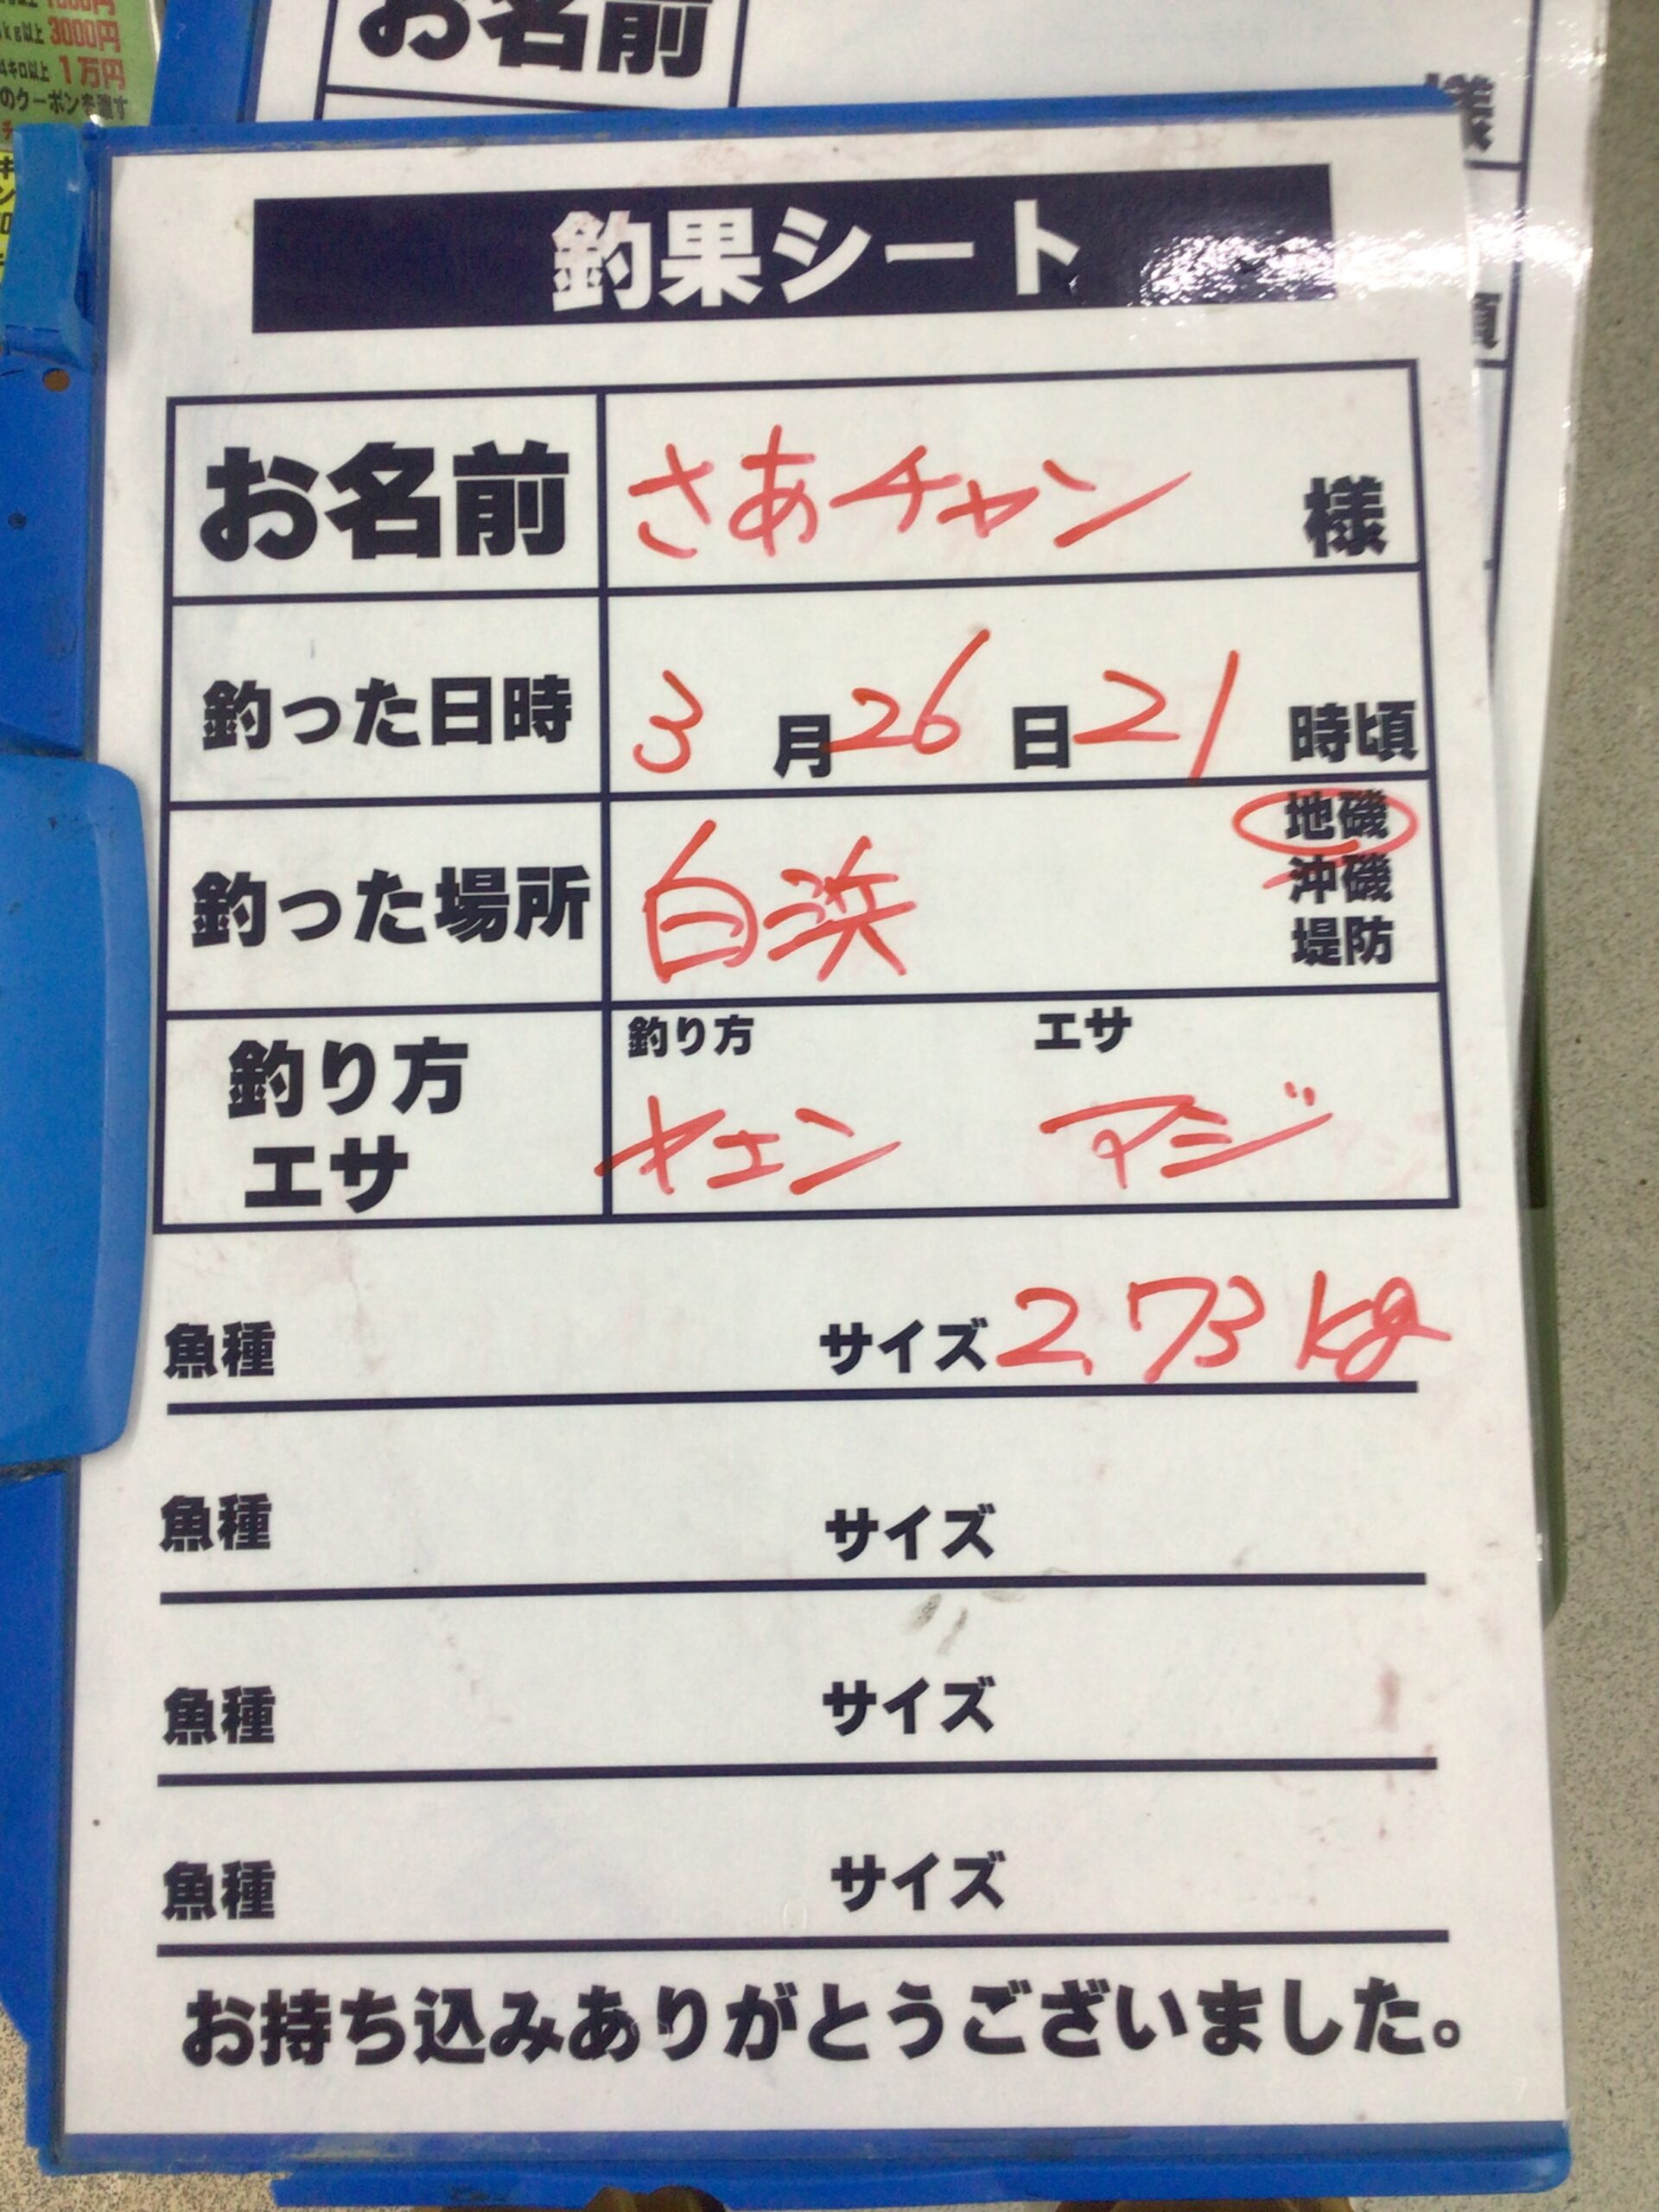 kg以上 3000円
4キロ以上 1万円
のクーポンを
お名前
様
釣果シート
お名前 さあチャン 様
釣った日時 3月26日21時頃
釣った場所 白浜 地磯
沖磯
堤防
釣り方 エサ
釣り方
エサ
ヤエン アジ
魚種 サイズ 2.73kg
魚種 サイズ
魚種 サイズ
魚種 サイズ
お持ち込みありがとうございました。